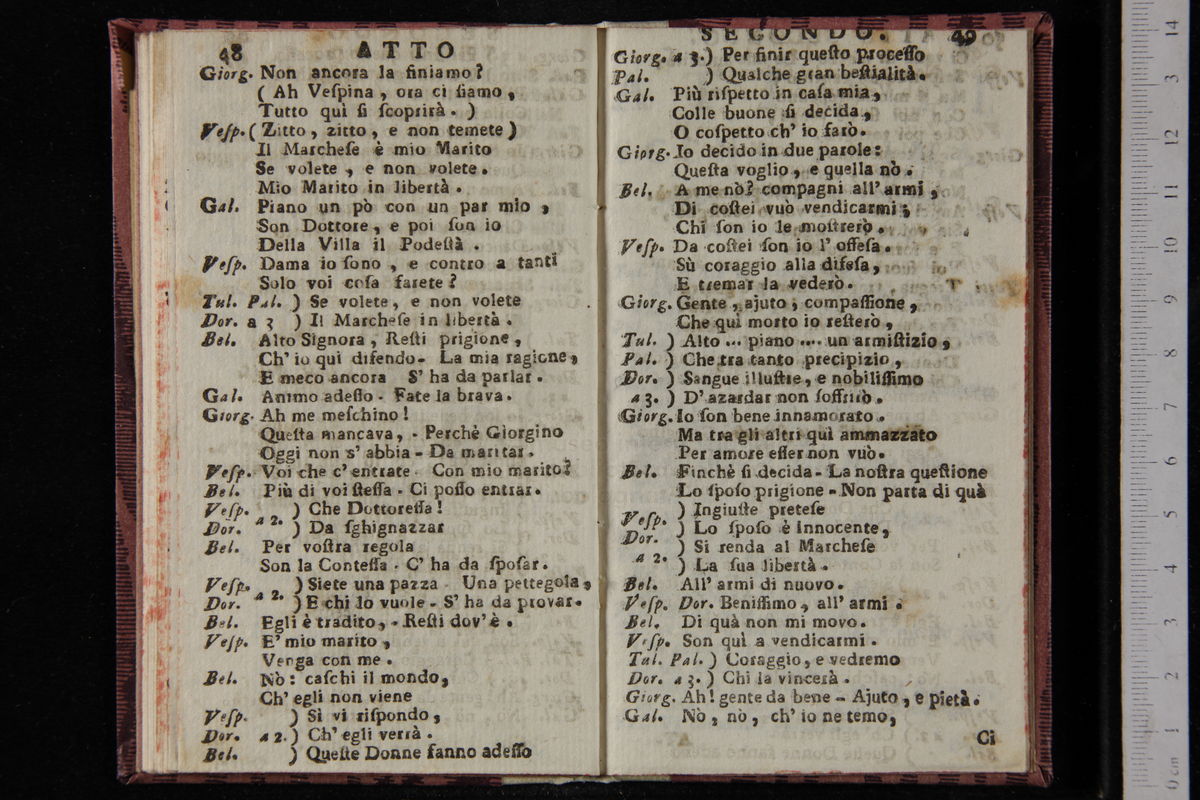 48 ATTO
Giorg. Non ancora la finiamo?
( Ah Veſpina, ora ci ſiamo,
Tutto quì ſi ſcoprirà. )
Veſp. ( Zitto, zitto, e non temete )
Il Marcheſe è mio Marito
Se volete, e non volete.
Mio Marito in libertà.
Gal. Piano un pò con un par mio,
Son Dottore, e poi ſon io
Della Villa il Podeſtà.
Veſp. Dama io ſono, e contro a tanti
Solo voi coſa farete?
Tul. Pal. ) Se volete, e non volete
Dor. a 3 ) Il Marcheſe in libertà.
Bel. Alto Signora, Reſti prigione,
Ch' io quì difendo- La mia ragione,
E meco ancora S' ha da parlar.
Gal. Animo adeſſo - Fate la brava.
Giorg. Ah me meſchino!
Queſta mancava, - Perchè Giorgino
Oggi non s' abbia - Da maritar.
Veſp. Voi che c' entrate Con mio marito?
Bel. Più di voi ſteſſa - Ci poſſo entrar.
Veſp. ) Che Dottoreſſa!
Dor. a 2. ) Da ſghignazzar
Bel. Per voſtra regola
Son la Conteſſa - C' ha da ſpoſar.
Veſp. ) Siete una pazza Una pettegola,
Dor. a 2. ) E chi lo vuole - S' ha da provar.
Bel. Egli è tradito, - Reſti dov' è.
Veſp. E' mio marito,
Venga con me.
Bel. Nò: caſchi il mondo,
Ch' egli non viene
Veſp. ) Sì vi riſpondo,
Dor. a 2. ) Ch' egli verrà.
Bel. ) Queſte Donne fanno adeſſo
SECONDO. 49
Giorg. a 3.) Per finir queſto proceſſo
Pal. ) Qualche gran beſtialità.
Gal. Più riſpetto in caſa mia,
Colle buone ſi decida,
O coſpetto ch' io farò.
Giorg. Io decido in due parole:
Queſta voglio, e quella nò.
Bel. A me nò? compagni all' armi,
Di coſtei vuò vendicarmi;
Chi ſon io le moſtrerò.
Veſp. Da coſtei ſon io l' offeſa.
Sù coraggio alla difeſa,
E tremar la vederò.
Giorg. Gente, ajuto, compaſſione,
Che quì morto io reſterò,
Tul. ) Alto ... piano .... un armiſtizio,
Pal. ) Che tra tanto precipizio,
Dor. ) Sangue illuſtre, e nobiliſſimo
a 3. ) D' azardar non ſoffrirò.
Giorg. Io ſon bene innamorato.
Ma tra gli altri quì ammazzato
Per amore eſſer non vuò.
Bel. Finchè ſi decida - La noſtra queſtione
Lo ſpoſo prigione - Non parta di quà
Veſp. ) Ingiuſte preteſe
Dor. ) Lo ſpoſo è innocente,
a 2. ) Si renda al Marcheſe
) La ſua libertà.
Bel. All' armi di nuovo.
Veſp. Dor. Beniſſimo, all' armi.
Bel. Di quà non mi movo.
Veſp. Son quì a vendicarmi.
Tul. Pal. ) Coraggio, e vedremo
Dor. a 3. ) Chi la vincerà.
Giorg. Ah! gente da bene - Ajuto, e pietà.
Gal. Nò, nò, ch' io ne temo,
Ci
0 cm 1 2 3 4 5 6 7 8 9 10 11 12 13 14